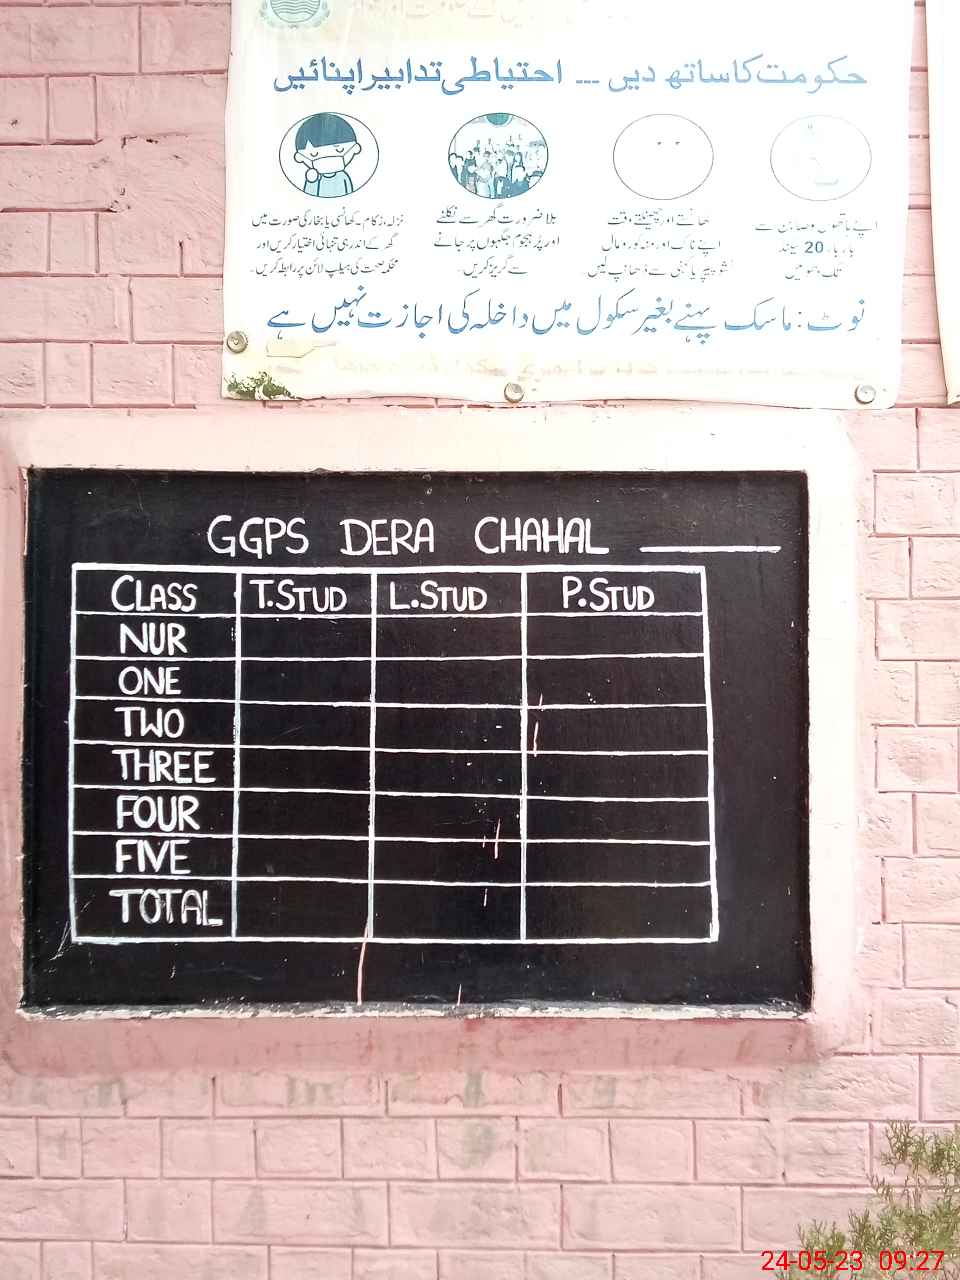 حکومت کا ساتھ دیں --- احتیاطی تدابیر اپنائیں
اپنے ہاتھوں کو صابن سے
بار بار 20 سیکنڈ
تک دھوئیں
کھانستے اور چھینکتے وقت
اپنے ناک اور منہ کو رومال
ٹشو پیپر یا کہنی سے ڈھانپ لیں
بلا ضرورت گھر سے نکلنے
اور پُر ہجوم جگہوں پر جانے
سے گریز کریں۔
نزلہ، زکام، کھانسی یا بخار کی صورت میں
گھر کے اندر ہی تنہائی اختیار کریں اور
محکمہ صحت کی ہیلپ لائن پر رابطہ کریں۔
نوٹ: ماسک پہنے بغیر سکول میں داخلہ کی اجازت نہیں ہے
GGPS DERA CHAHAL
CLASS T.STUD L.STUD P.STUD
NUR
ONE
TWO
THREE
FOUR
FIVE
TOTAL
24-05-23 09:27